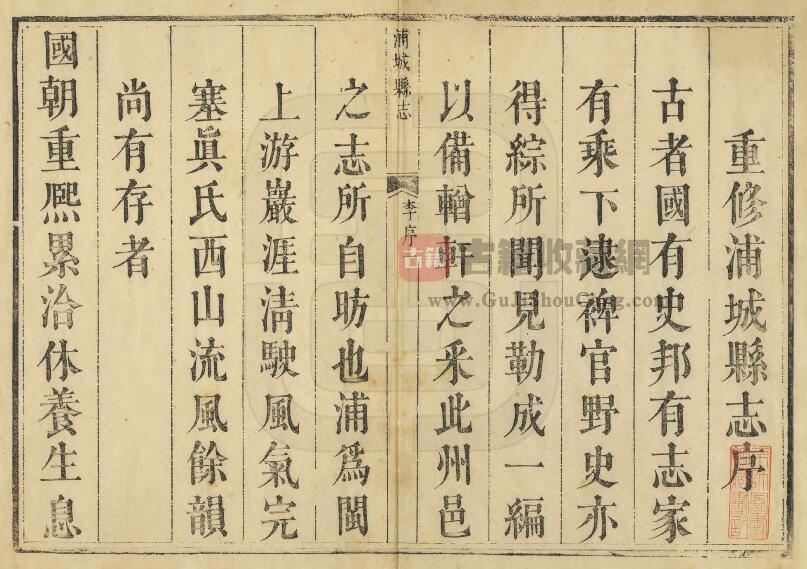 重修浦城縣志序
古者國有史邦有志家
有乘下逮稗官野史亦
得綜所聞見勒成一編
以備輶軒之采此州邑
浦城縣志
李序
之志所自昉也浦為閩
上游巖涯清駛風氣完
塞眞氏西山流風餘韻
尚有存者
國朝重熙累洽休養生息
古籍
古籍收藏網
www.GuJiShouCang.com